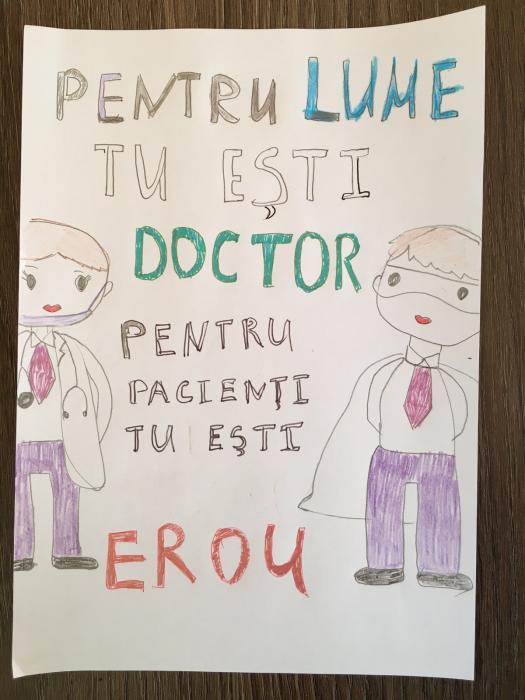 PENTRU LUME
TU EȘTI
DOCTOR
PENTRU
PACIENȚI
TU EȘTI
EROU